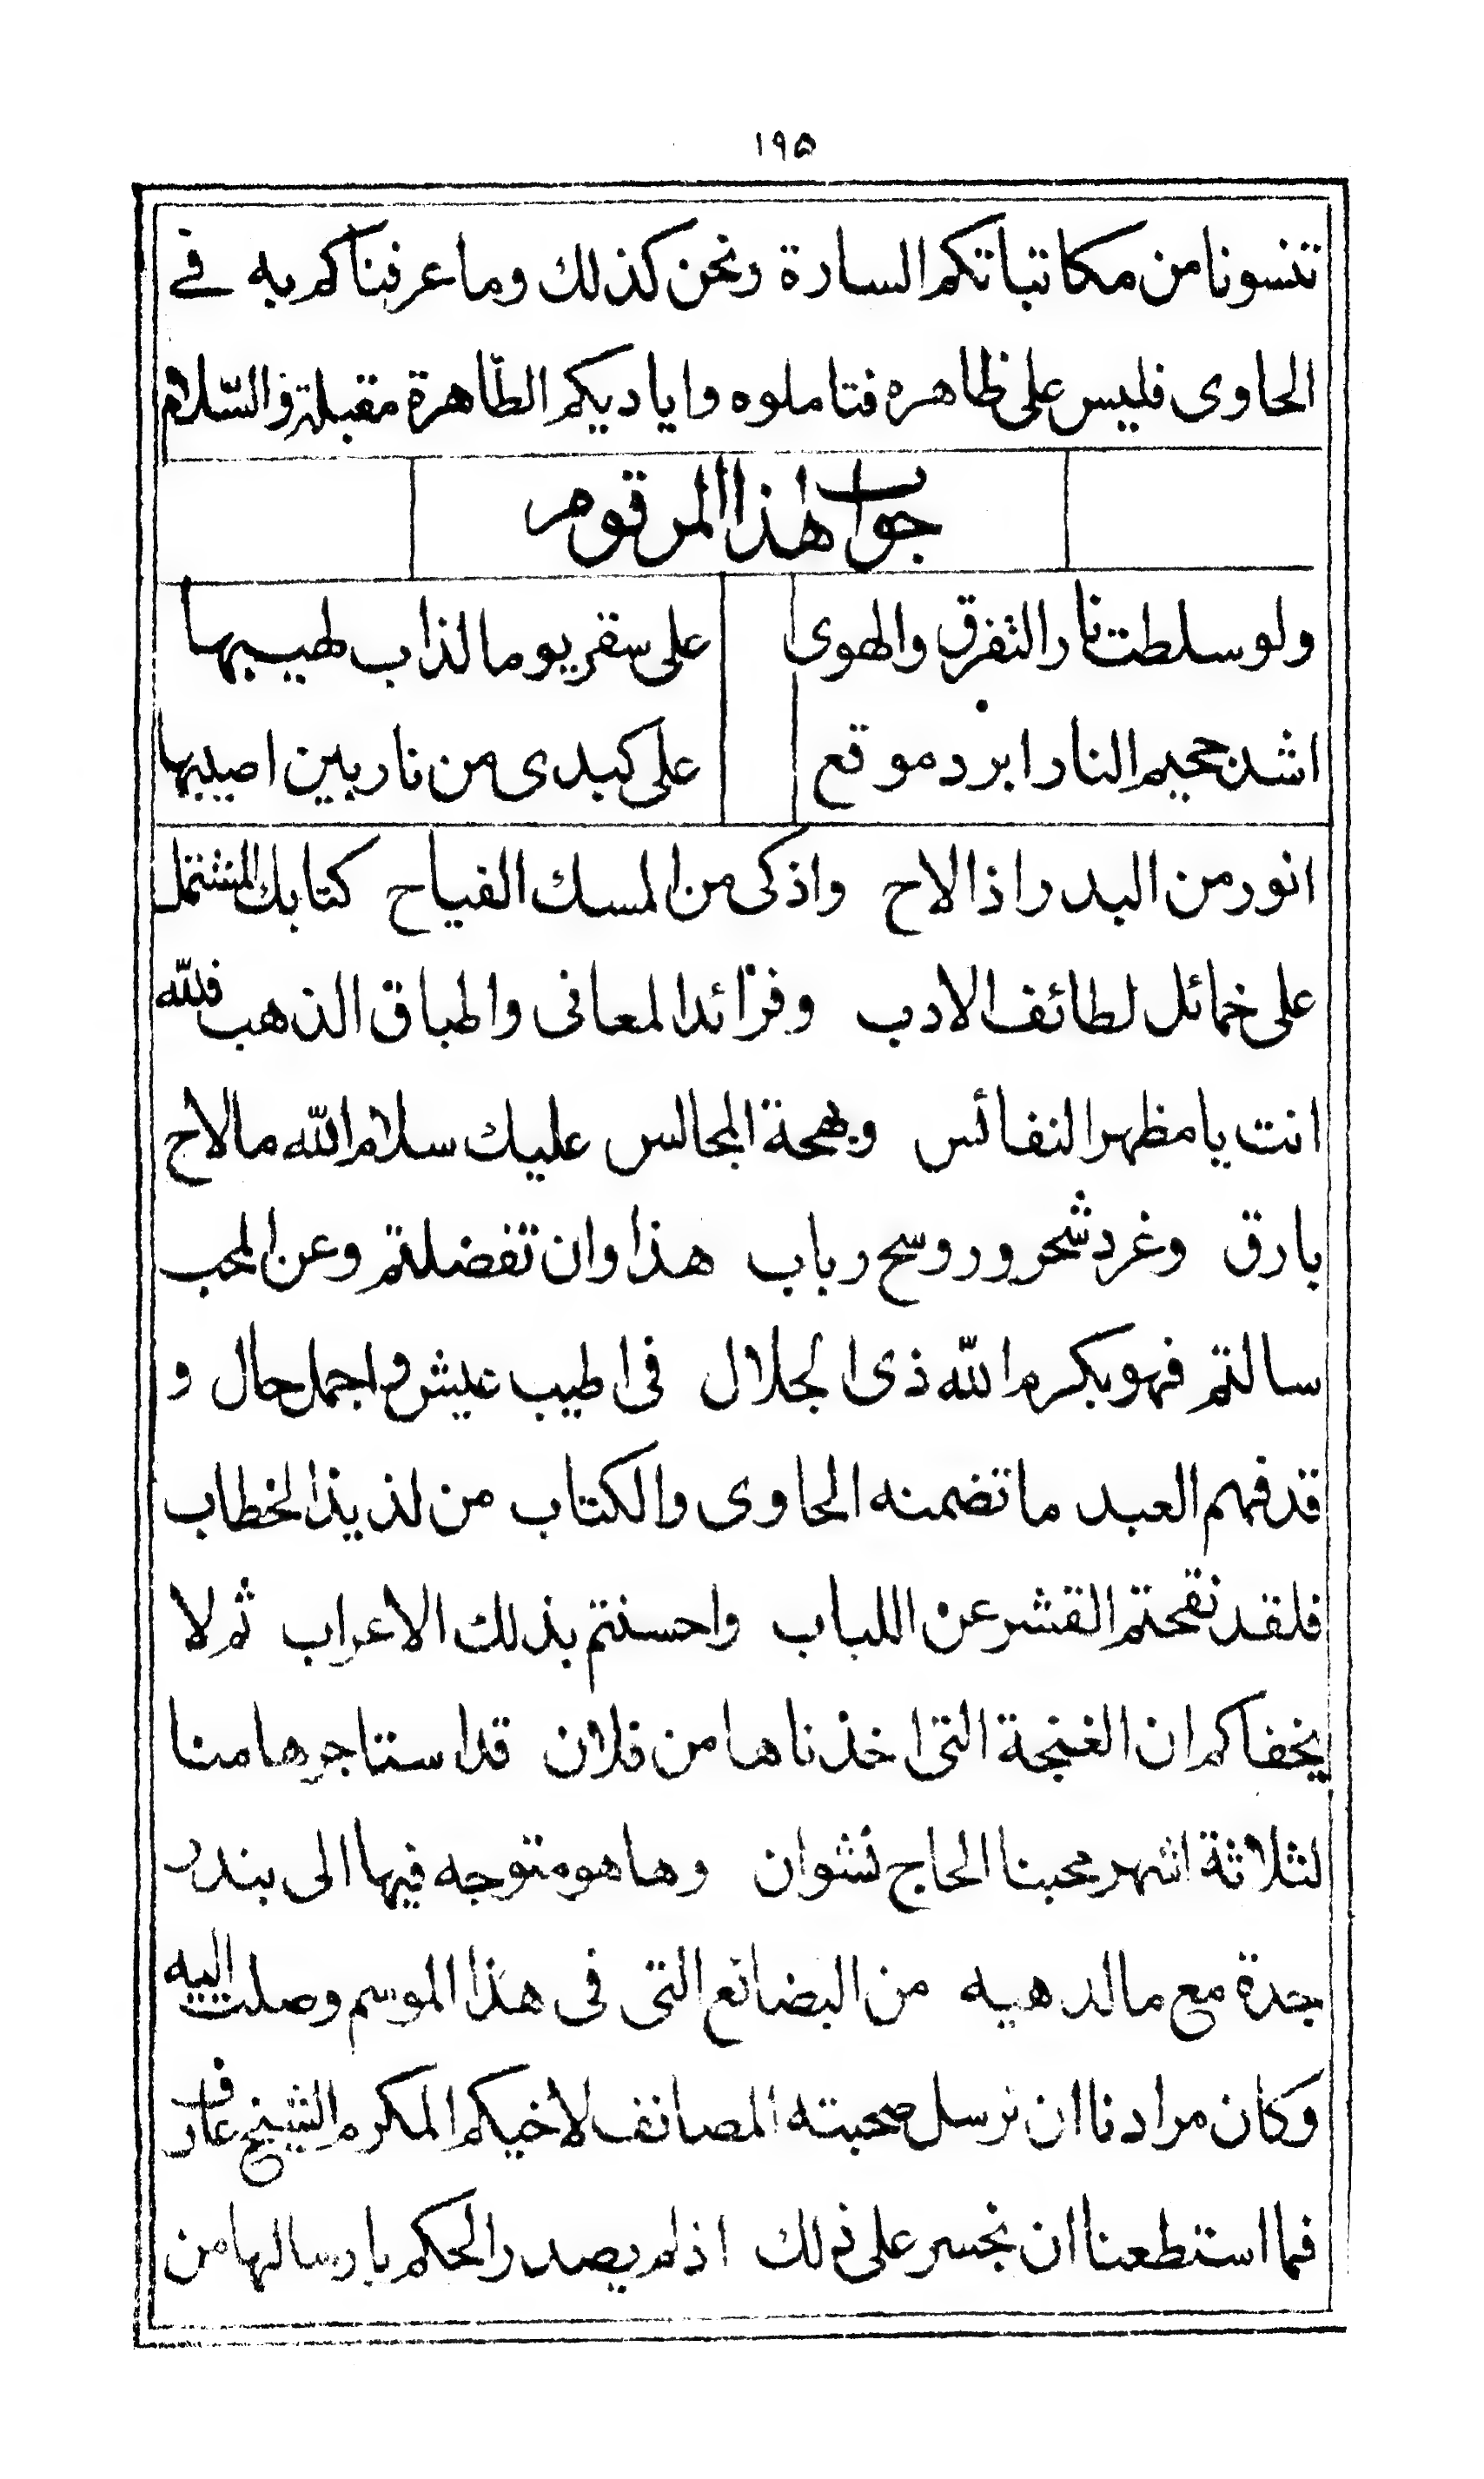 ١٩٥
تنسونا من مكاتباتكم السارة ونحن كذلك وما عرفناكم به في
الحاوى فليس على ظاهره فتاملوه واياديكم الطّاهرة مقبلة والسّلام
جواب هذا المرقوم
ولو سلطت نار التفرق والهوى على سقر يوما لذاب لهيبها
اشد جحيم النار ابرد موقع على كبدى من نار بين اصيبها
انور من البدر اذا لاح واذكى من المسك الفياح كتابك المشتمل
على خمائل لطائف الادب وفرائد المعانى واطباق الذهب فلله
انت يا مظهر النفائس وبهجة المجالس عليك سلام الله ما لاح
بارق وغرد شحرور وسح رباب هذا وان تفضلتم وعن المحب
سالتم فهو بكرم الله ذى الجلال فى اطيب عيش واجمل حال و
قد فهم العبد ما تضمنه الحاوى والكتاب من لذيذ الخطاب
فلقد نقحتم القشر عن اللباب واحسنتم بذلك الاعراب ثم لا
يخفاكم ان الغنجة التى اخذناها من فلان قد استاجرها منا
لثلاثة اشهر محبنا الحاج نشوان وها هو متوجه فيها الى بندر
جدة مع ما لدهيه من البضائع التى فى هذا الموسم وصلت اليه
وكان مرادنا ان نرسل صحبته المصانف لاخيكم المكرم الشيخ عارف
فما استطعنا ان نجسر على ذلك اذ لم يصدر الحكم بارسالها من